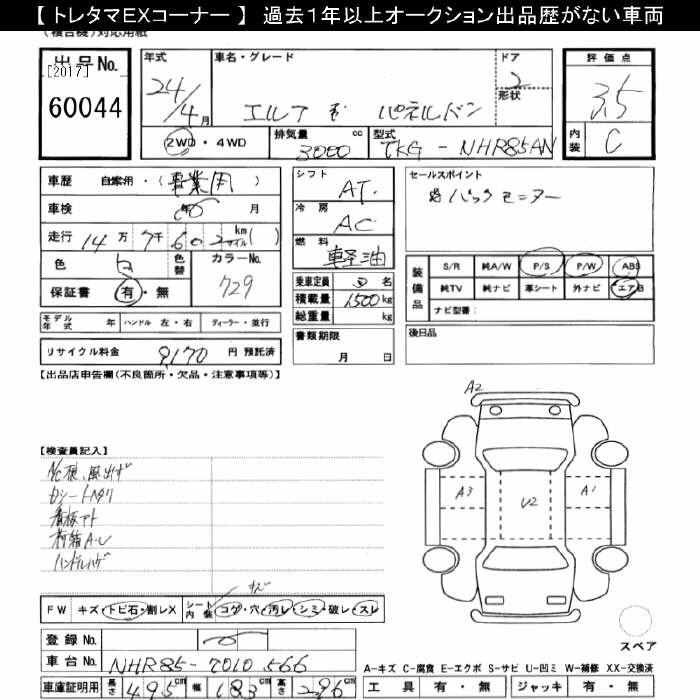 【 トレタマEXコーナー 】 過去１年以上オークション出品歴がない車両
(複合機)対応用紙
出品No.
[2017]
60044
年式 車名・グレード ドア
24/4月 エルフ パネルバン 2
形状
2WD・4WD 排気量 3000 cc 型式 TKG-NHR85AN
評価点
3.5
内装 C
車歴 自家用・(事業用)
車検 年 月
走行 14万7千602 km マイル( )
色 白 色替 カラーNo. 729
保証書 有・無
シフト AT
冷房 AC
燃料 軽油
乗車定員 3名
積載量 1500kg
総重量 kg
セールスポイント
バックモニター
装備品 S/R 純A/W P/S P/W ABS
純TV 純ナビ 革シート 外ナビ エアB
ナビ型番:
モデル年式 年 ハンドル 左・右 ディーラー・並行
リサイクル料金 9,170 円 預託済
書類期限
月 日
後日品
【出品店申告欄(不良箇所・欠品・注意事項等)】
【検査員記入】
Dシートヘタリ
看板アト
荷箱A・U
ハンドルハゲ
A2
A3
U2
A1
スペア
FW キズ・トビ石・割レX シート内装 コゲ・穴・汚レ・シミ・破レ・スレ
登録No.
車台No. NHR85-7010566
車庫証明用 長さ 495cm 幅 183cm 高さ 296cm
A-キズ C-腐食 E-エクボ S-サビ U-凹ミ W-補修 XX-交換済
工具 有・無 ジャッキ 有・無